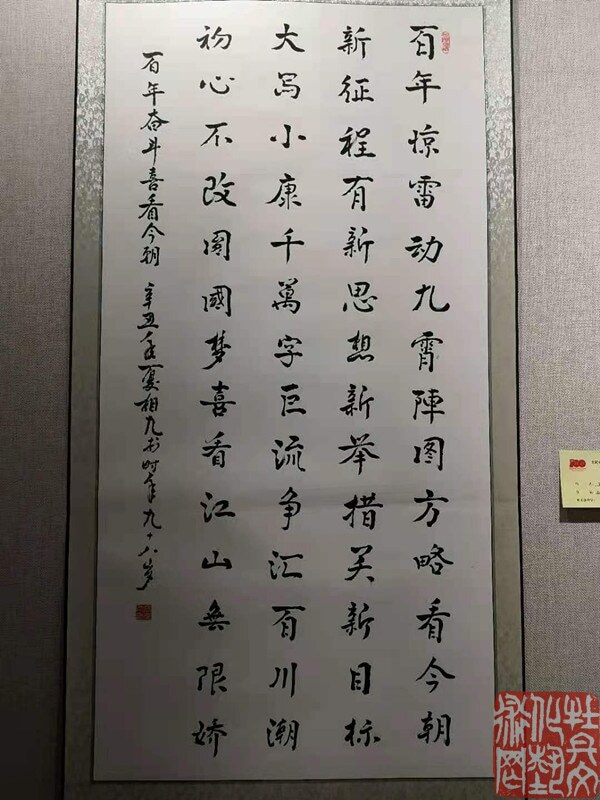 百年惊雷动九霄陣图方略看今朝
新征程有新思想新举措关新目标
大写小康千萬字巨流争汇百川潮
初心不改圆國梦喜看江山無限娇
百年奋斗喜看今朝 辛丑年夏相九书时年九十八岁